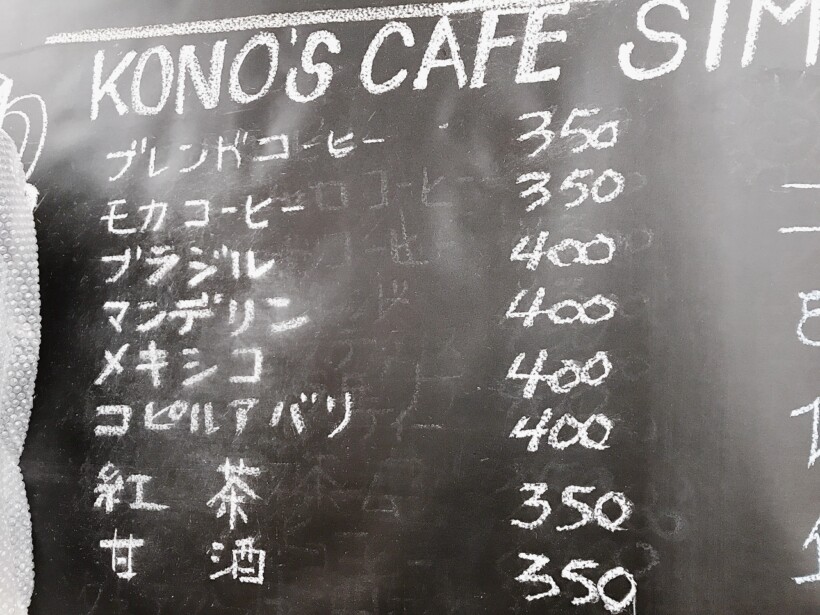 KONO'S CAFE SIM
ブレンドコーヒー 350
モカコーヒー 350
ブラジル 400
マンデリン 400
メキシコ 400
コピルアバリ 400
紅茶 350
甘酒 350